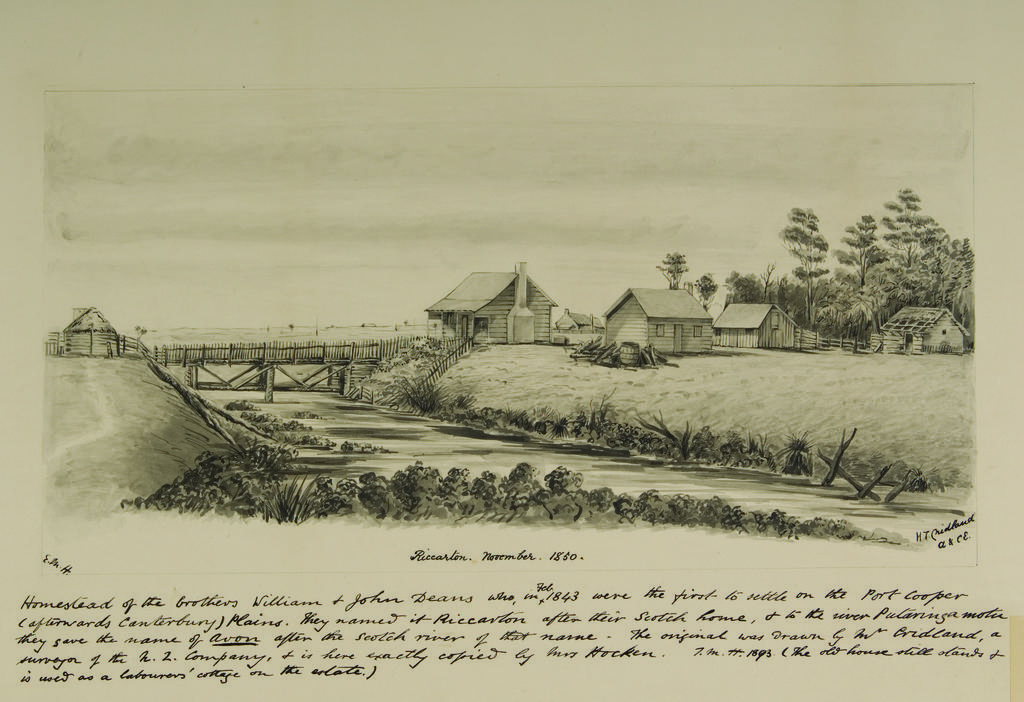 H T Cridland
A & CE.
Riccarton. November. 1850.
E. M. H.
Homestead of the brothers William & John Deans who, in Feb. 1843 were the first to settle on the Port Cooper
(afterwards Canterbury) Plains. They named it Riccarton after their Scotch home, & to the river Putaringamotu
they gave the name of Avon after the Scotch river of that name - The original was drawn by Mr Cridland, a
surveyor of the N. Z. Company, & is here exactly copied by Mrs Hocken. T. M. H. 1893 (The old house still stands &
is used as a labourers' cottage on the estate.)